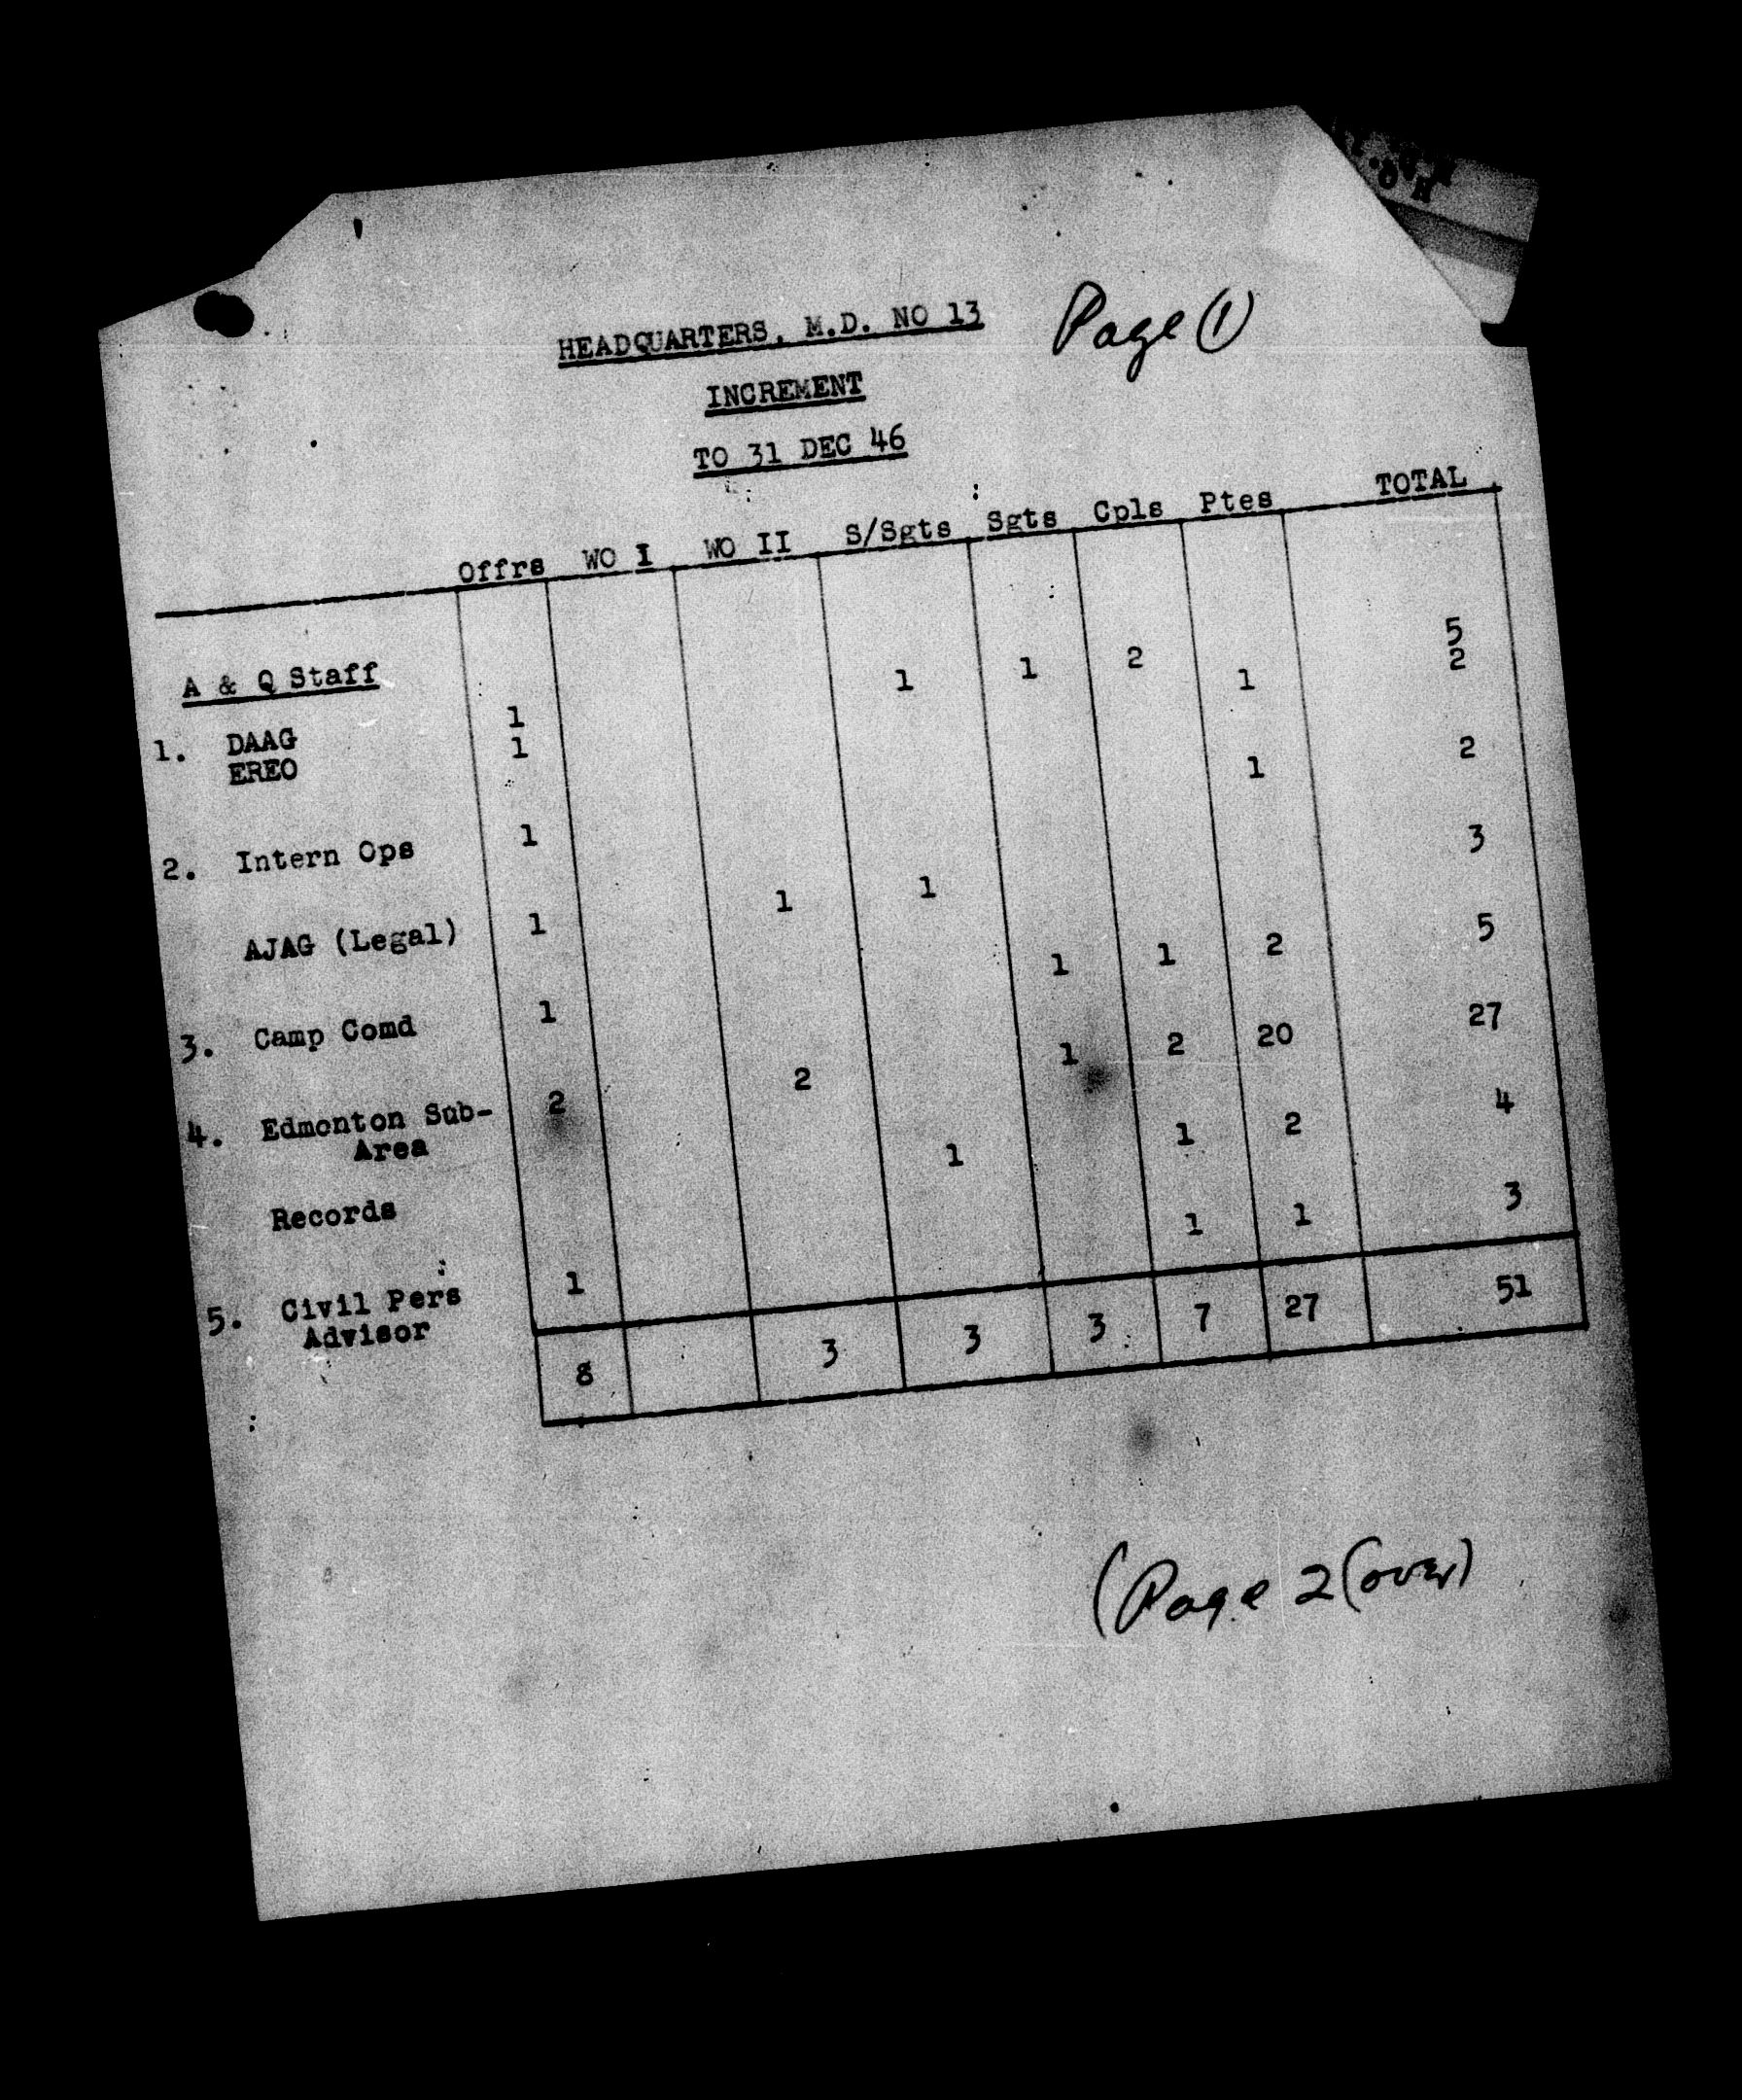 HEADQUARTERS, M.D. NO 13 Page (1)
INCREMENT
TO 31 DEC 46
Offrs WO I WO II S/Sgts Sgts Cpls Ptes TOTAL
A & Q Staff
1. DAAG 1 1 1 2 5
EREO 1 1 2
2. Intern Ops 1 1 2
AJAG (Legal) 1 1 1 3
3. Camp Comd 1 1 1 2 5
4. Edmonton Sub- 2 2 1 2 20 27
Area
Records 1 1 2 4
5. Civil Pers 1 1 1 3
Advisor
8 3 3 3 7 27 51
(Page 2 (over)